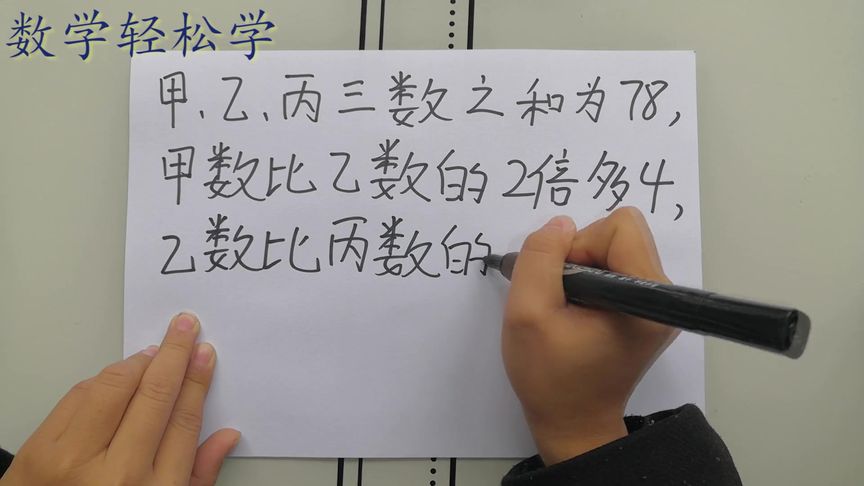 数学轻松学
甲、乙、丙三数之和为78,
甲数比乙数的2倍多4,
乙数比丙数的